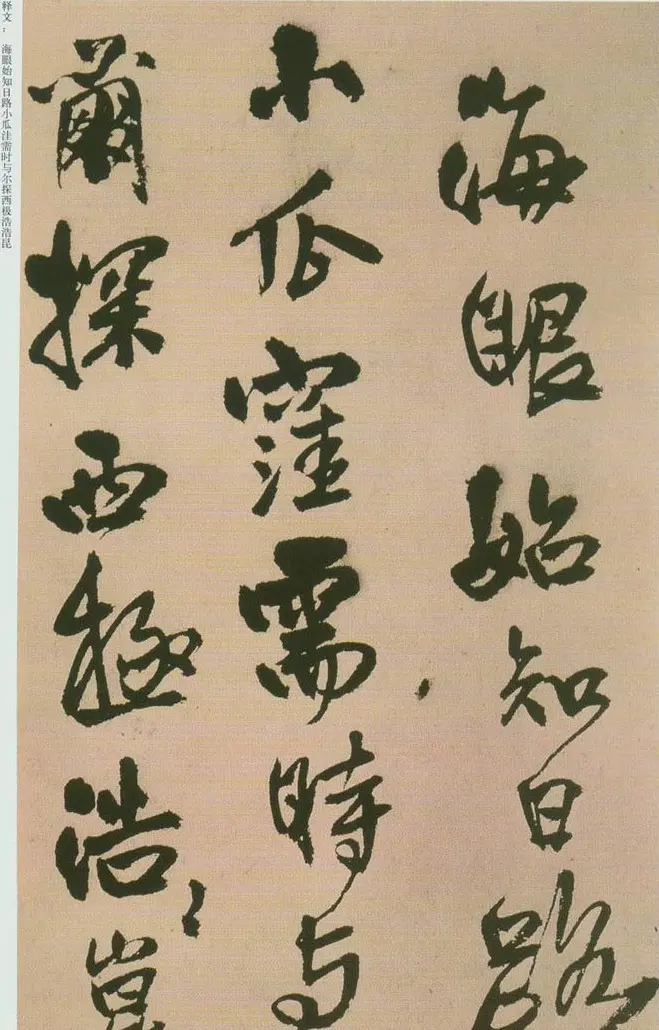 海眼始知日路
小瓜窪需時与
爾探西極浩〻崑
释文： 海眼始知日路小瓜洼需时与尔探西极浩浩昆